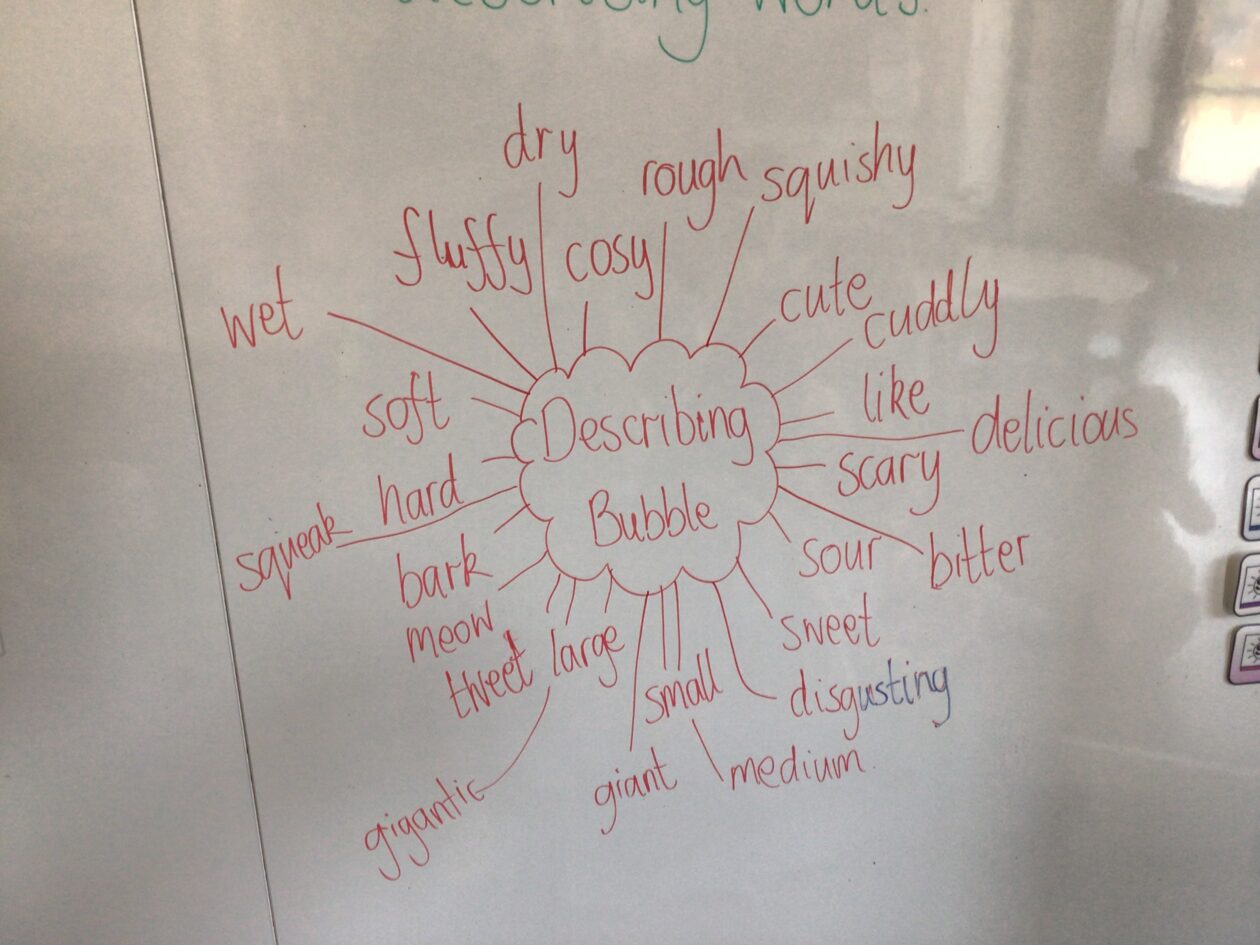 describing words.
dry
rough
squishy
fluffy
cosy
wet
cute
cuddly
soft
like
delicious
Describing
Bubble
hard
scary
squeak
bark
sour
bitter
meow
tweet
large
sweet
small
disgusting
giant
medium
gigantic